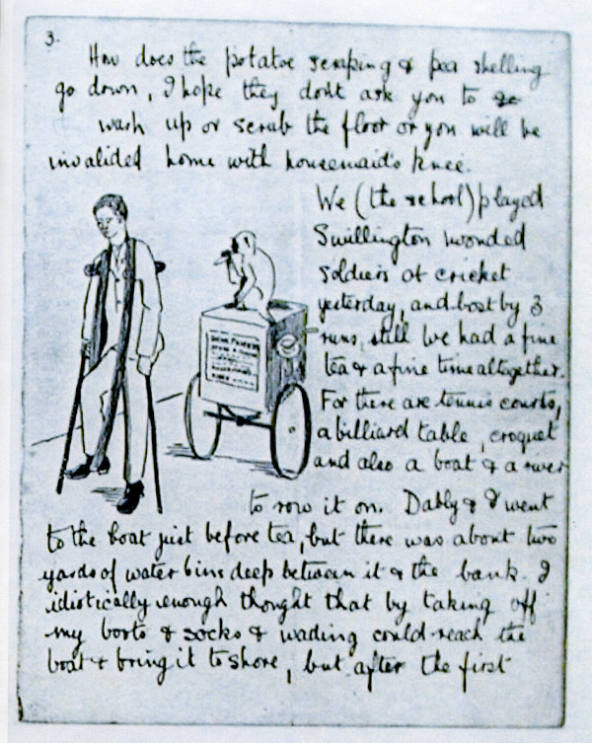 3.
How does the potatoe scraping & pea shelling
go down, I hope they dont ask you to
wash up or scrub the floor or you will be
invalided home with housemaid's knee.
We (the school) played
Swillington wonded
soldiers at cricket
yesterday, and bost by 3
runs, still we had a fine
tea & a fine time altogether.
For there are tennis courts,
a billiard table, croquet
and also a boat & a river
to row it on. Dably & I went
to the boat just before tea, but there was about two
yards of water 6ins deep between it & the bank. I
idiotically enough thought that by taking off
my boots & socks & wading could reach the
boat & bring it to shore, but after the first